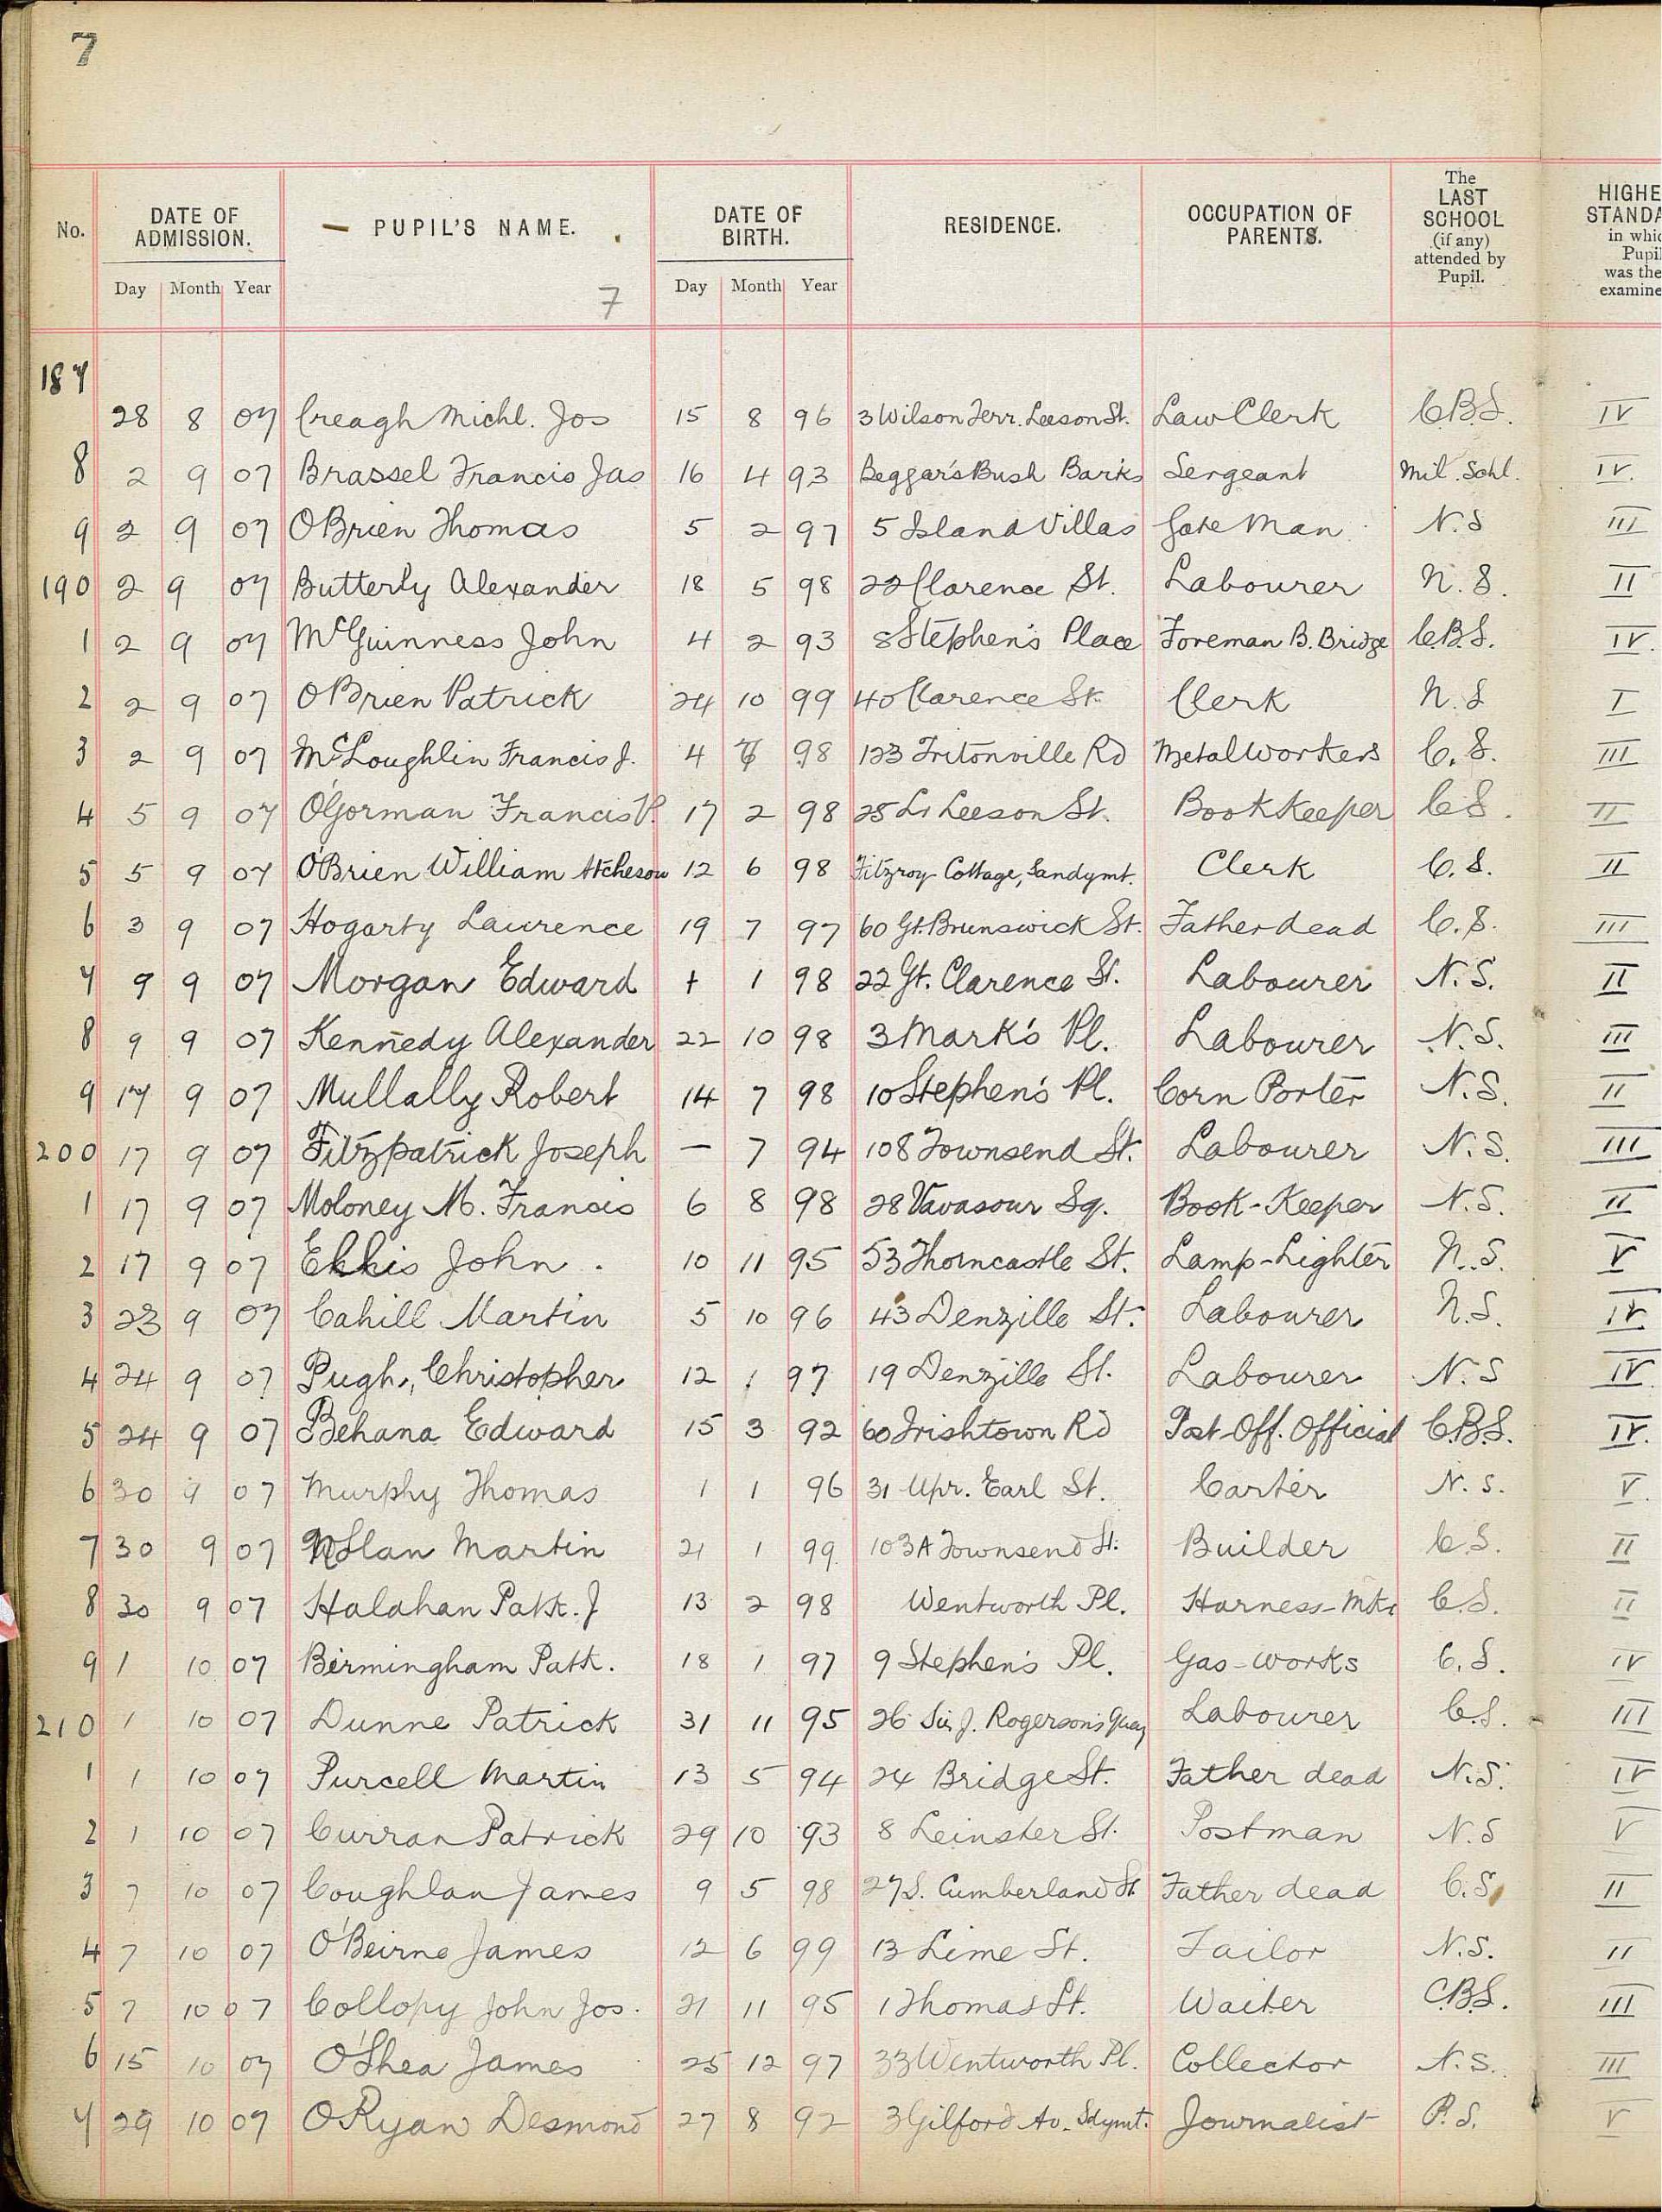 7
No. DATE OF ADMISSION. — PUPIL'S NAME. DATE OF BIRTH. RESIDENCE. OCCUPATION OF PARENTS. The LAST SCHOOL (if any) attended by Pupil. HIGHE STANDA in whic Pupi was the examine
Day Month Year 7 Day Month Year
187
28 8 07 Creagh Michl. Jos 15 8 96 3 Wilson Terr. Leeson St. Law Clerk C.B.S. IV
8 2 9 07 Brassel Francis Jas 16 4 93 Beggar's Bush Barks Sergeant Mil. Schl. IV.
9 2 9 07 O'Brien Thomas 5 2 97 5 Island Villas Gate Man N.S III
190 2 9 07 Butterly Alexander 18 5 98 22 Clarence St. Labourer N.S. II
1 2 9 07 McGuinness John 4 2 93 8 Stephen's Place Foreman B. Bridge C.B.S. IV.
2 2 9 07 O'Brien Patrick 24 10 99 40 Clarence St. Clerk N.S I
3 2 9 07 McLoughlin Francis J. 4 98 123 Tritonville Rd Metal Workers C.S. III
4 5 9 07 O'Gorman Francis P. 17 2 98 28 Lr Leeson St. Book Keeper C.S. II
5 5 9 07 O'Brien William Atcheson 12 6 98 Fitzroy Cottage, Sandymt. Clerk C.S. II
6 3 9 07 Hogarty Laurence 19 7 97 60 Gt. Brunswick St. Father dead C.S. III
7 9 9 07 Morgan Edward + 1 98 22 Gt. Clarence St. Labourer N.S. II
8 9 9 07 Kennedy Alexander 22 10 98 3 Mark's Pl. Labourer N.S. III
9 17 9 07 Mullally Robert 14 7 98 10 Stephen's Pl. Corn Porter N.S. II
200 17 9 07 Fitzpatrick Joseph — 7 94 108 Townsend St. Labourer N.S. III
1 17 9 07 Moloney M. Francis 6 8 98 28 Vavasour Sq. Book-Keeper N.S. II
2 17 9 07 John. 10 11 95 53 Thorncastle St. Lamp-Lighter N.S. V
3 23 9 07 Cahill Martin 5 10 96 43 Denzille St. Labourer N.S. IV
4 24 9 07 Pugh, Christopher 12 1 97 19 Denzille St. Labourer N.S IV.
5 24 9 07 Behana Edward 15 3 92 60 Irishtown Rd Post-Off. Official C.B.S. IV.
6 30 9 07 Murphy Thomas 1 1 96 31 Upr. Earl St. Carter N.S. V.
7 30 9 07 Nolan Martin 21 1 99 103A Townsend St. Builder C.S. II
8 30 9 07 Halahan Patk. J 13 2 98 Wentworth Pl. Harness-Mkr C.S. II
9 1 10 07 Birmingham Patk. 18 1 97 9 Stephen's Pl. Gas-works C.S. IV
210 1 10 07 Dunne Patrick 31 11 95 26 Sir J. Rogerson's Quay Labourer C.S. III
1 1 10 07 Purcell Martin 13 5 94 24 Bridge St. Father dead N.S. IV
2 1 10 07 Curran Patrick 29 10 93 8 Leinster St. Postman N.S V
3 7 10 07 Coughlan James 9 5 98 27 S. Cumberland St. Father dead C.S. II
4 7 10 07 O'Beirne James 12 6 99 13 Lime St. Tailor N.S. II
5 7 10 07 Collopy John Jos. 21 11 95 1 Thomas St. Waiter C.B.S. III
6 15 10 07 O'Shea James 25 12 97 33 Wentworth Pl. Collector N.S. III
7 29 10 07 O'Ryan Desmond 27 8 92 3 Gilford Av. Sdymt. Journalist P.S. V